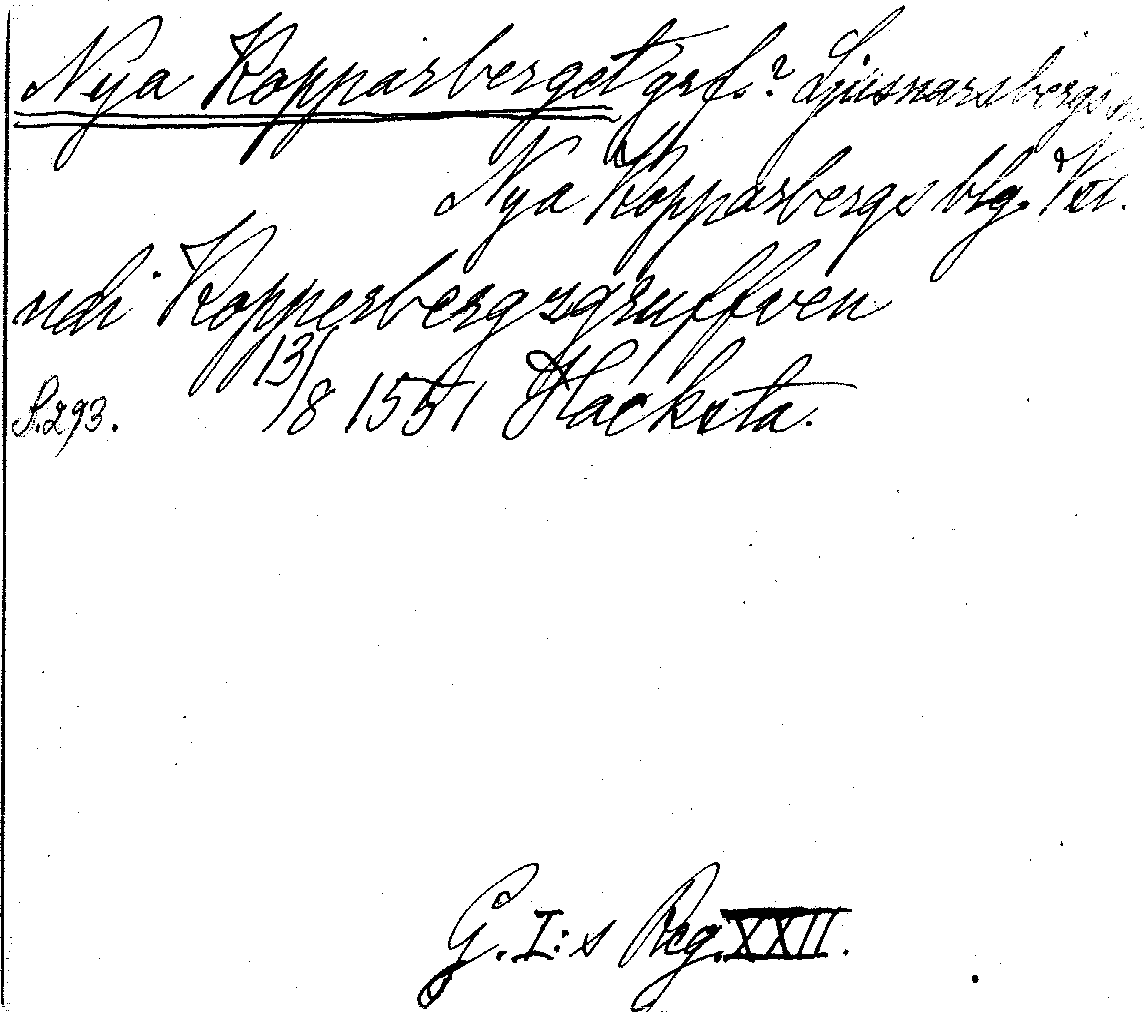 Nya Kopparberget grf.? Ljusnarsbergs
Nya Kopparbergs blg. Vstl.
udi Kopperbergzgruffven
S. 293. 13/8 1551 Hacksta.
G. I:s Reg. XXII.